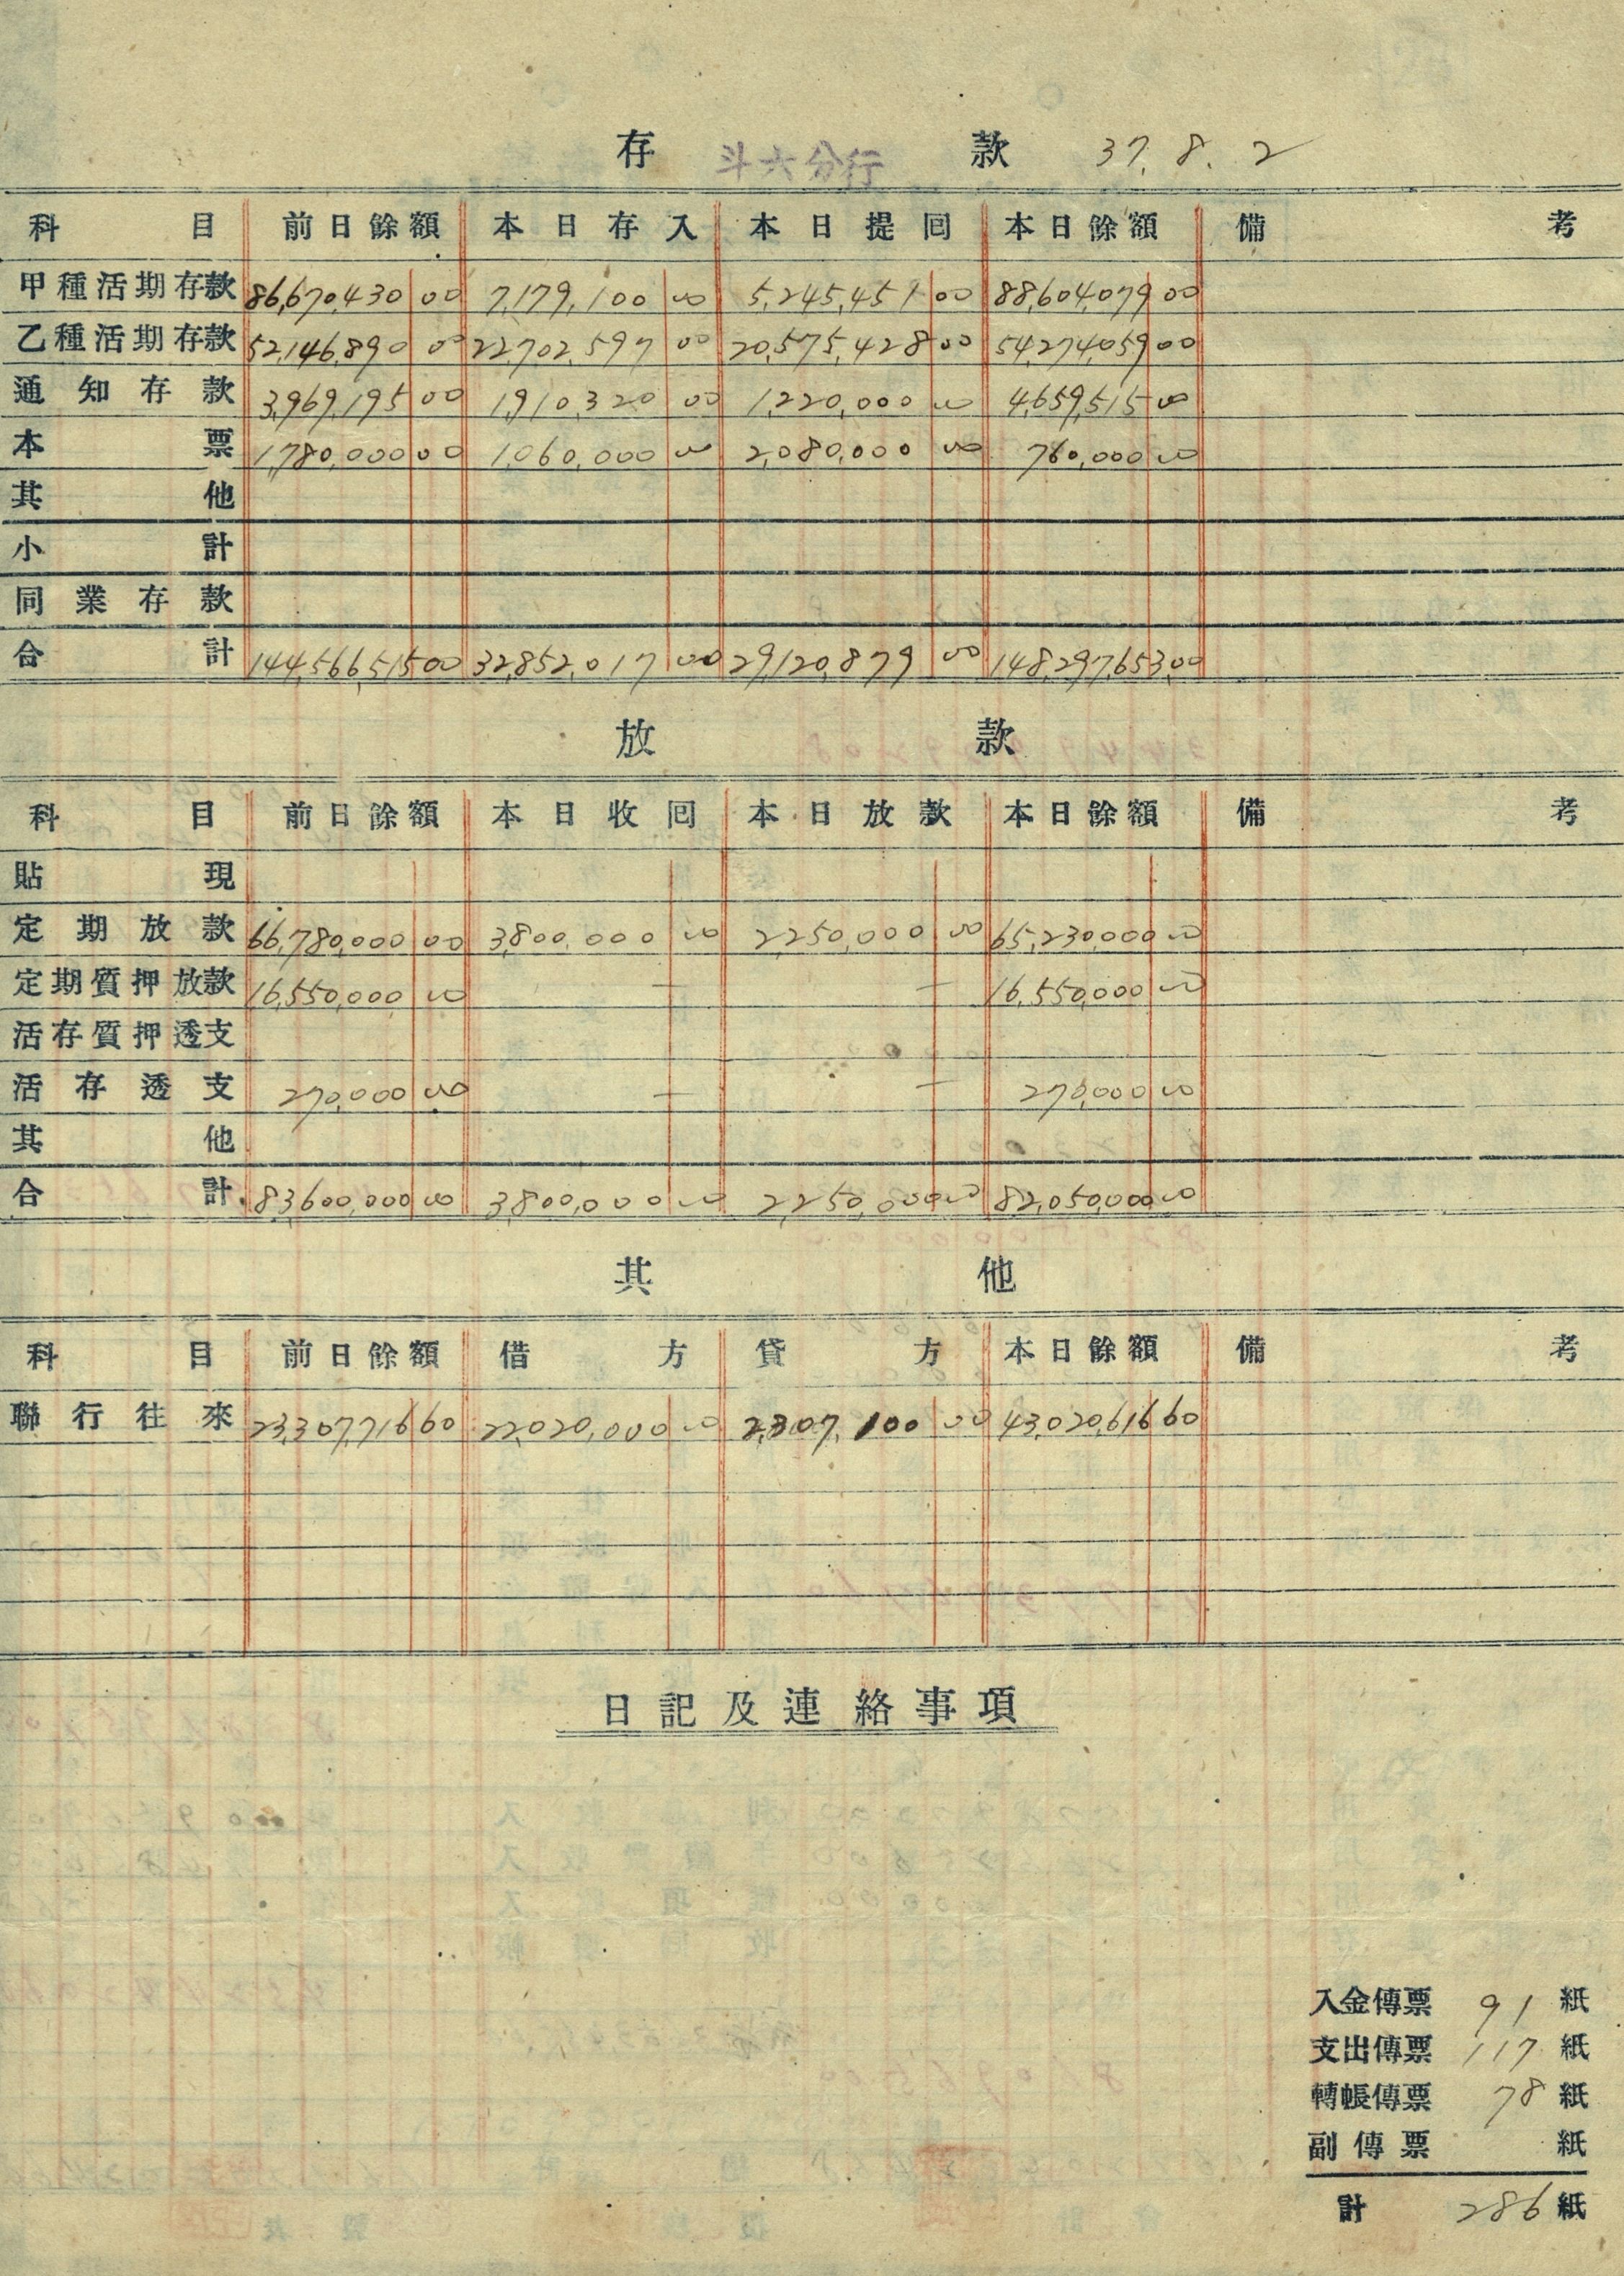 存 斗六分行 款 37.8.2
科目 前日餘額 本日存入 本日提回 本日餘額 備考
甲種活期存款 86,670,430 00 7,179,100 00 5,245,451 00 88,604,079 00
乙種活期存款 52,146,890 00 22,702,597 00 20,575,428 00 54,274,059 00
通知存款 3,969,195 00 1,910,320 00 1,220,000 00 4,659,515 00
本票 1,780,000 00 1,060,000 00 2,080,000 00 760,000 00
其他
小計
同業存款
合計 144,566,515 00 32,852,017 00 29,120,879 00 148,297,653.00
放款
科目 前日餘額 本日收回 本日放款 本日餘額 備考
貼現
定期放款 66,780,000 00 3,800,000 00 2,250,000 00 65,230,000 00
定期質押放款 16,550,000 00 — — 16,550,000 00
活存質押透支
活存透支 270,000 00 — — 270,000 00
其他
合計 83,600,000 00 3,800,000 00 2,250,000 00 82,050,000 00
其他
科目 前日餘額 借方 貸方 本日餘額 備考
聯行往來 23,307,716 60 22,020,000 00 2,307,100 00 43,020,616 60
日記及連絡事項
入金傳票 91 紙
支出傳票 117 紙
轉帳傳票 78 紙
副傳票 紙
計 286 紙